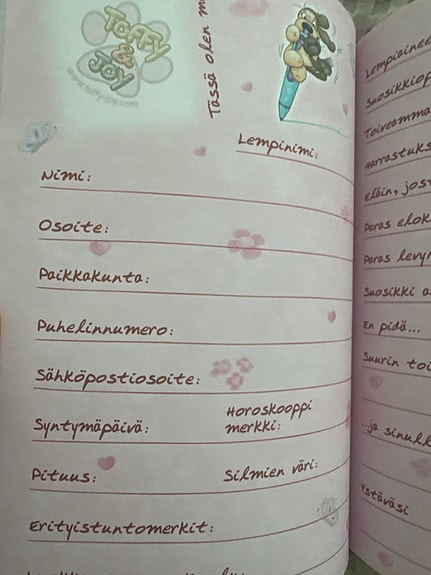 Toffy
&
Joy
www.toffy-joy.com
Tässä olen
Lempinimi:
Nimi:
Osoite:
Paikkakunta:
Puhelinnumero:
Sähköpostiosoite:
Syntymäpäivä:
Horoskooppi
merkki:
Pituus:
Silmien väri:
Erityistuntomerkit:
Lempiainee
Suosikkiop
Toiveamma
Harrastuks
Eläin, jos
Paras elok
Paras levy
Suosikki a
En pidä...
Suurin toi
...ja sinull
Ystäväsi